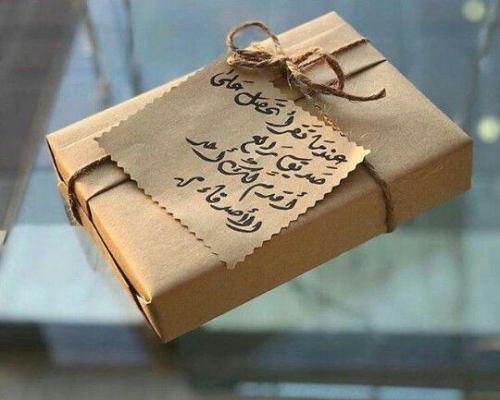 عندما تقرأ تحصل على
صديق رائع
أقدم لك أحد
الأصدقاء